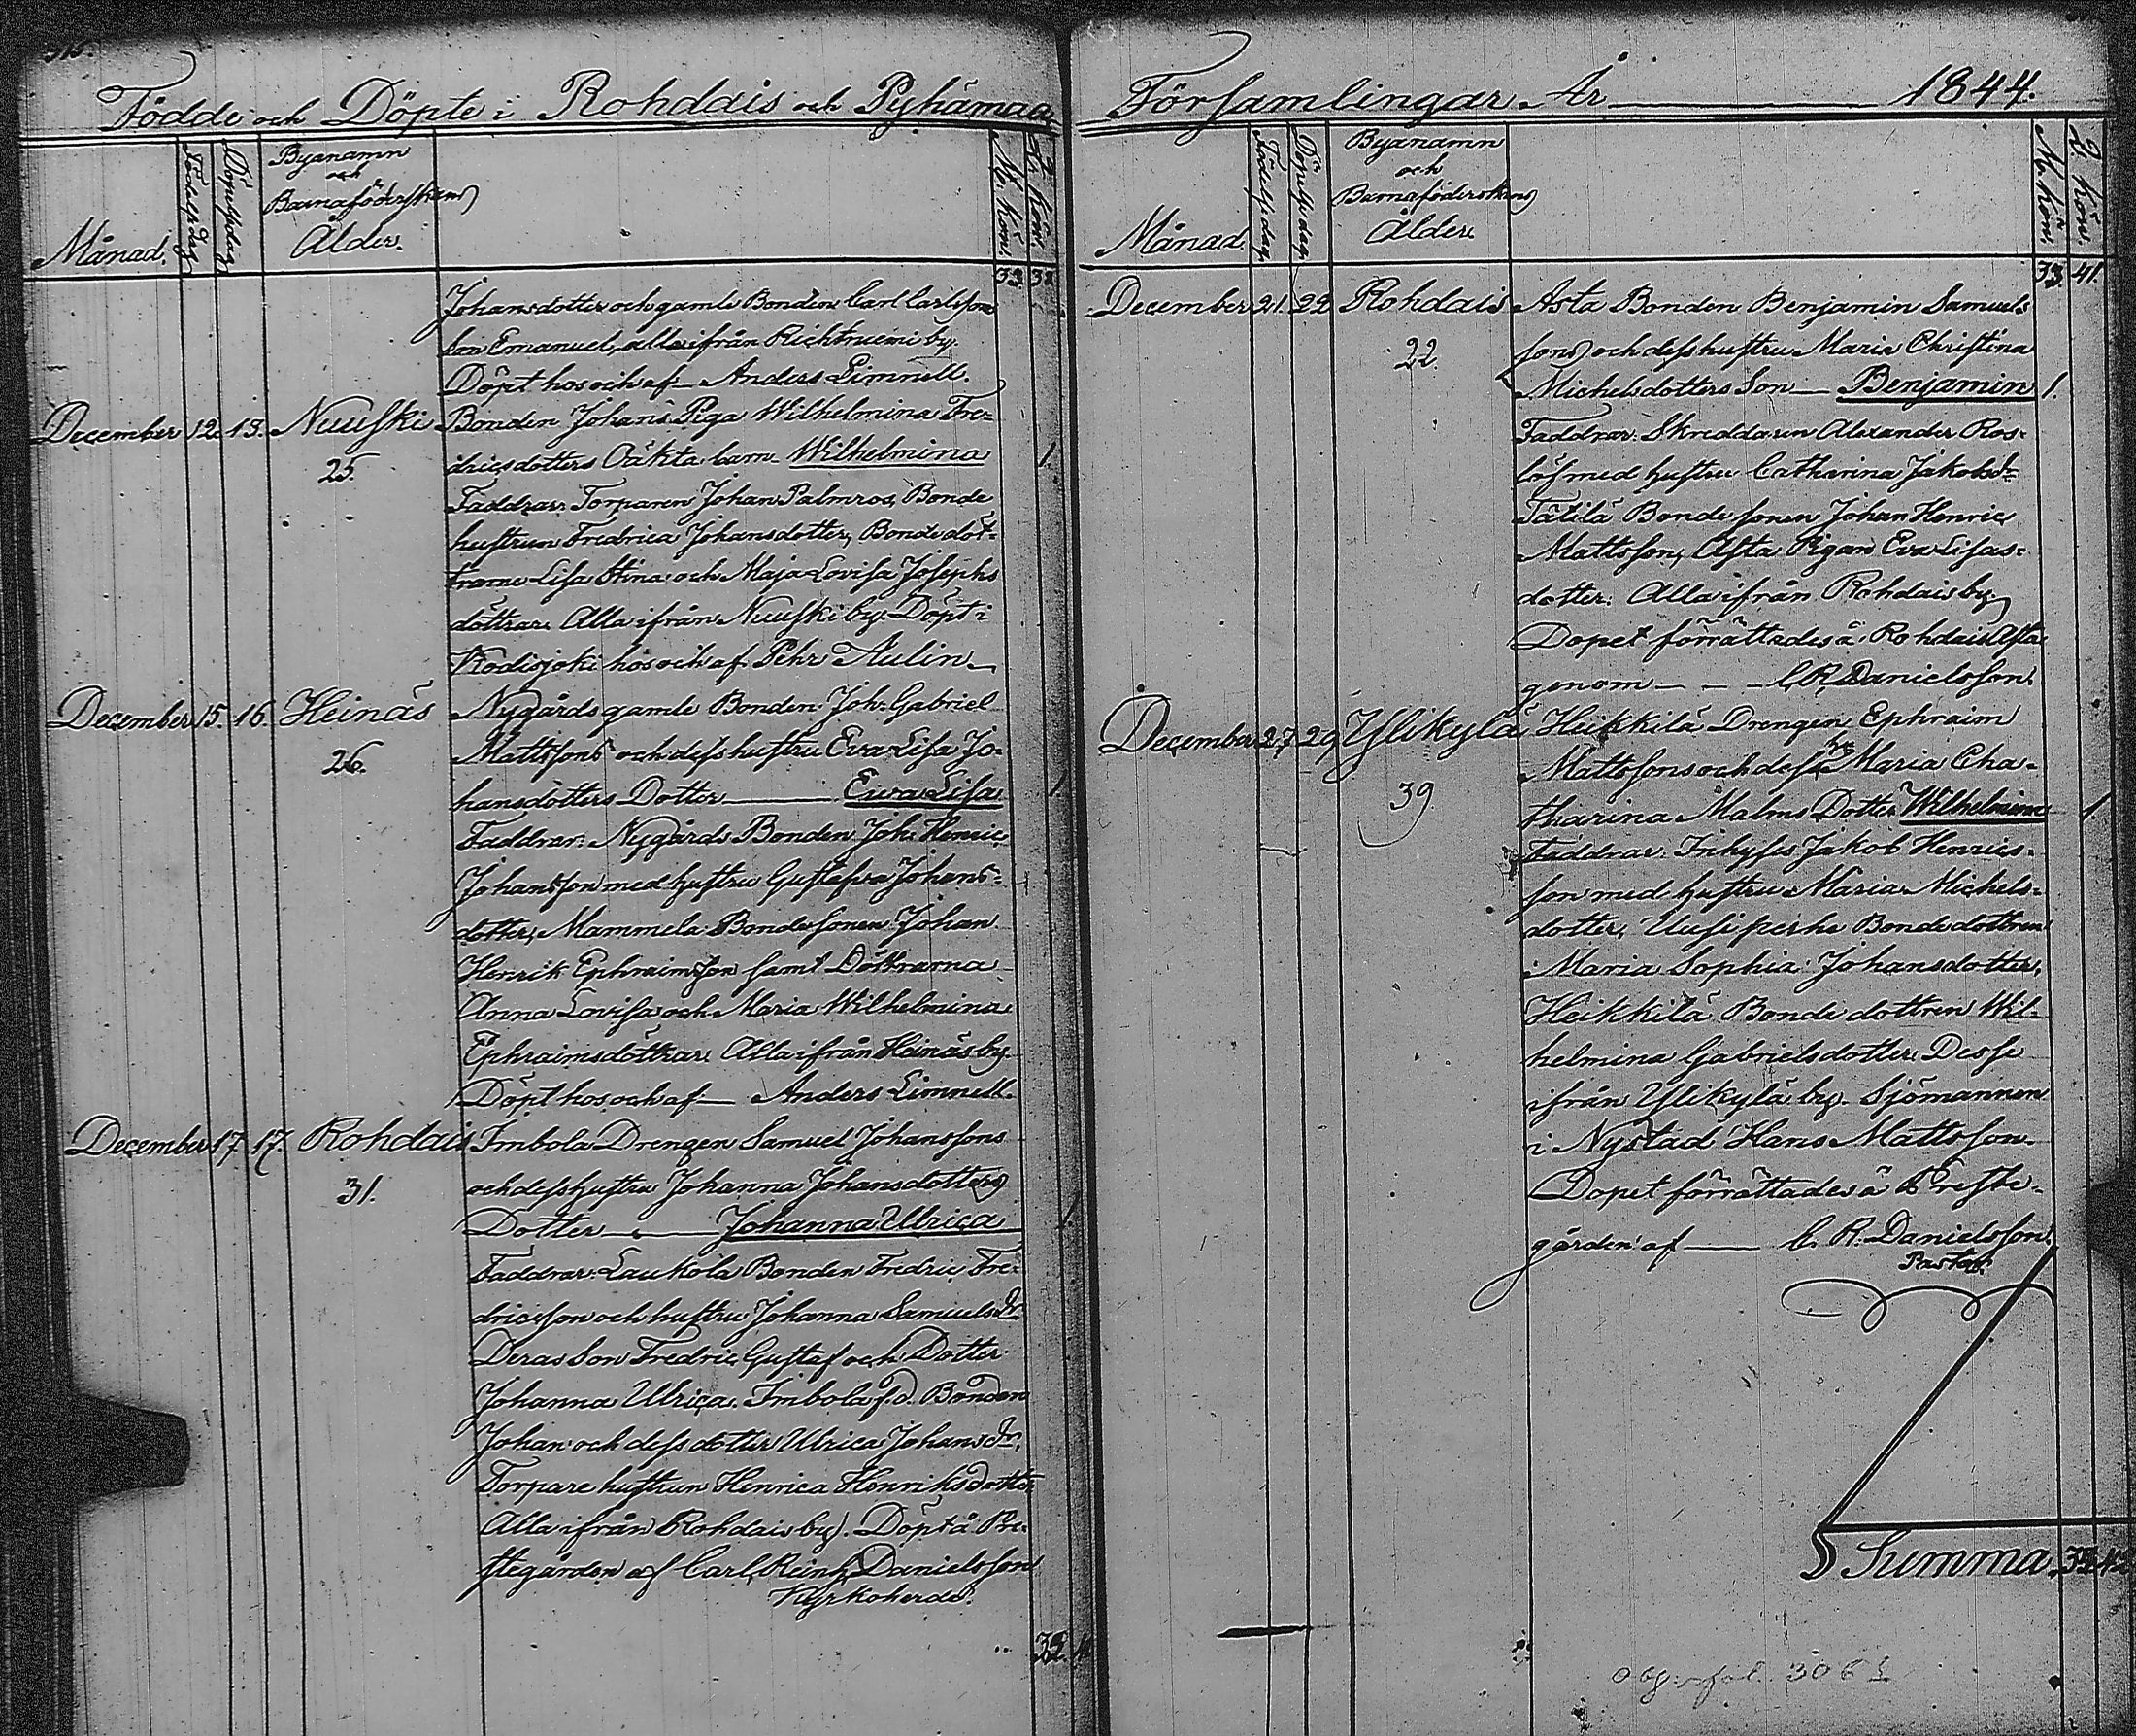 315.
Födde och Döpte i Rohdais och Pyhämaa
Månad.
Födelsedag
Döpelsedag
Byanamn
och
Barnaföderskans
Ålder.
M. kön.
Q. kön.
33 38
Johansdotter och gamle Bonden Carl Carlsson
son Emanuel, alla ifrån Richtniemi by.
Döpt hos och af — Anders Limnell.
December 12. 13. Nuuski Bonden Johans Piga Wilhelmina Fre-
25. dricsdotters Oäkta barn — Wilhelmina 1.
Faddrar: Torparen Johan Palmros, Bonde
hustrun Fredrica Johansdotter, Bondedöt-
trarne Lisa Stina och Maja Lovisa Josephs
döttrar. Alla ifrån Nuuski by. Döpt i
Kodisjoki hos och af Pehr Aulin.
December 15. 16. Heinäs Nygårds gamle Bonden Joh. Gabriel
26. Mattssons och dess hustru Eva Lisa Jo-
hansdotters Dotter — Eva Lisa 1
Faddrar: Nygårds Bonden Joh. Henric
Johansson med hustru Gustafva Johans-
dotter, Mammela Bondesonen Johan
Henrik Ephraimsson samt Döttrarna
Anna Lovisa och Maria Wilhelmina
Ephraimsdöttrar. Alla ifrån Heinäs by.
Döpt hos och af — Anders Limnell.
December 17. 17. Rohdais Imbola Drengen Samuel Johanssons
31. och dess hustru Johanna Johansdotters
Dotter — Johanna Ulrica 1.
Faddrar: Laukola Bonden Fredric Fre-
dricsson och hustru Johanna Samuelsdr.
Deras Son Fredric Gustaf och Dotter
Johanna Ulrica. Imbola f.d. Bonden
Johan och dess dotter Ulrica Johansdr.
Torpare hustrun Henrica Henriksdotter
Alla ifrån Rohdais by. Döpt å Pre-
stegården af Carl Reinh. Danielsson
Kyrkoherde.
Församlingar År — 1844.
Månad.
Födelsedag
Döpelsedag
Byanamn
och
Barnaföderskans
Ålder.
M. kön.
Q. kön.
33 41.
December 21. 22 Rohdais Asta Bonden Benjamin Samuels
22. sons och dess hustru Maria Christina
Michelsdotters Son — Benjamin 1.
Faddrar: Skreddaren Alexander Ros-
löf med hustru Catharina Jakobsdr
Tätilä Bonde sonen Johan Henric
Mattsson, Asta Pigan Eva Lisas-
dotter. Alla ifrån Rohdais by
Dopet förrättades å Rohdais Asta
genom — C. R. Danielsson.
December 27. 29 Ylikylä Heikkilä Drengen Ephraim
39. Mattssons och dess hu Maria Cha-
tharina Malms Dotter Wilhelmina 1
Faddrar: Inhyses Jakob Henrics-
son med hustru Maria Michels-
dotter, Uusi perhe Bondedottren
Maria Sophia Johansdotter,
Heikkilä Bonde dottren Wil-
helmina Gabrielsdotter. Desse
ifrån Ylikylä by. Sjömannen
i Nystad Hans Mattsson.
Dopet förrättades å Preste-
gården af — C. R. Danielsson.
Pastor.
Summa.